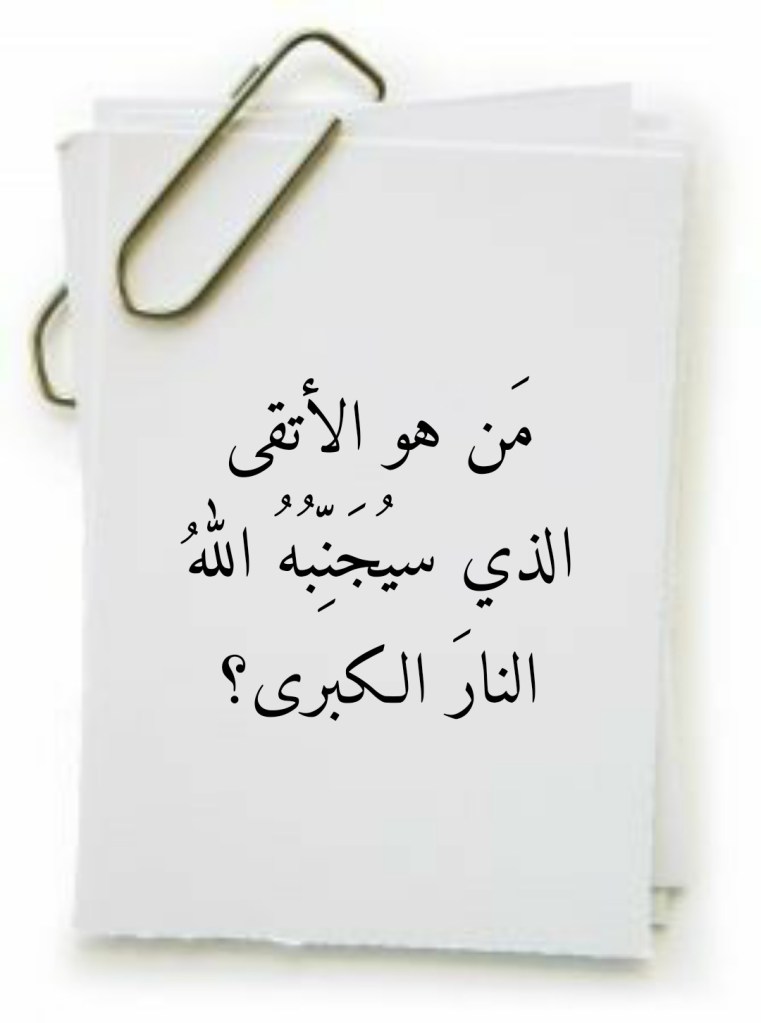 مَن هو الأتقى
الذي سيُجَنِّبُهُ اللهُ
النارَ الكبرى؟